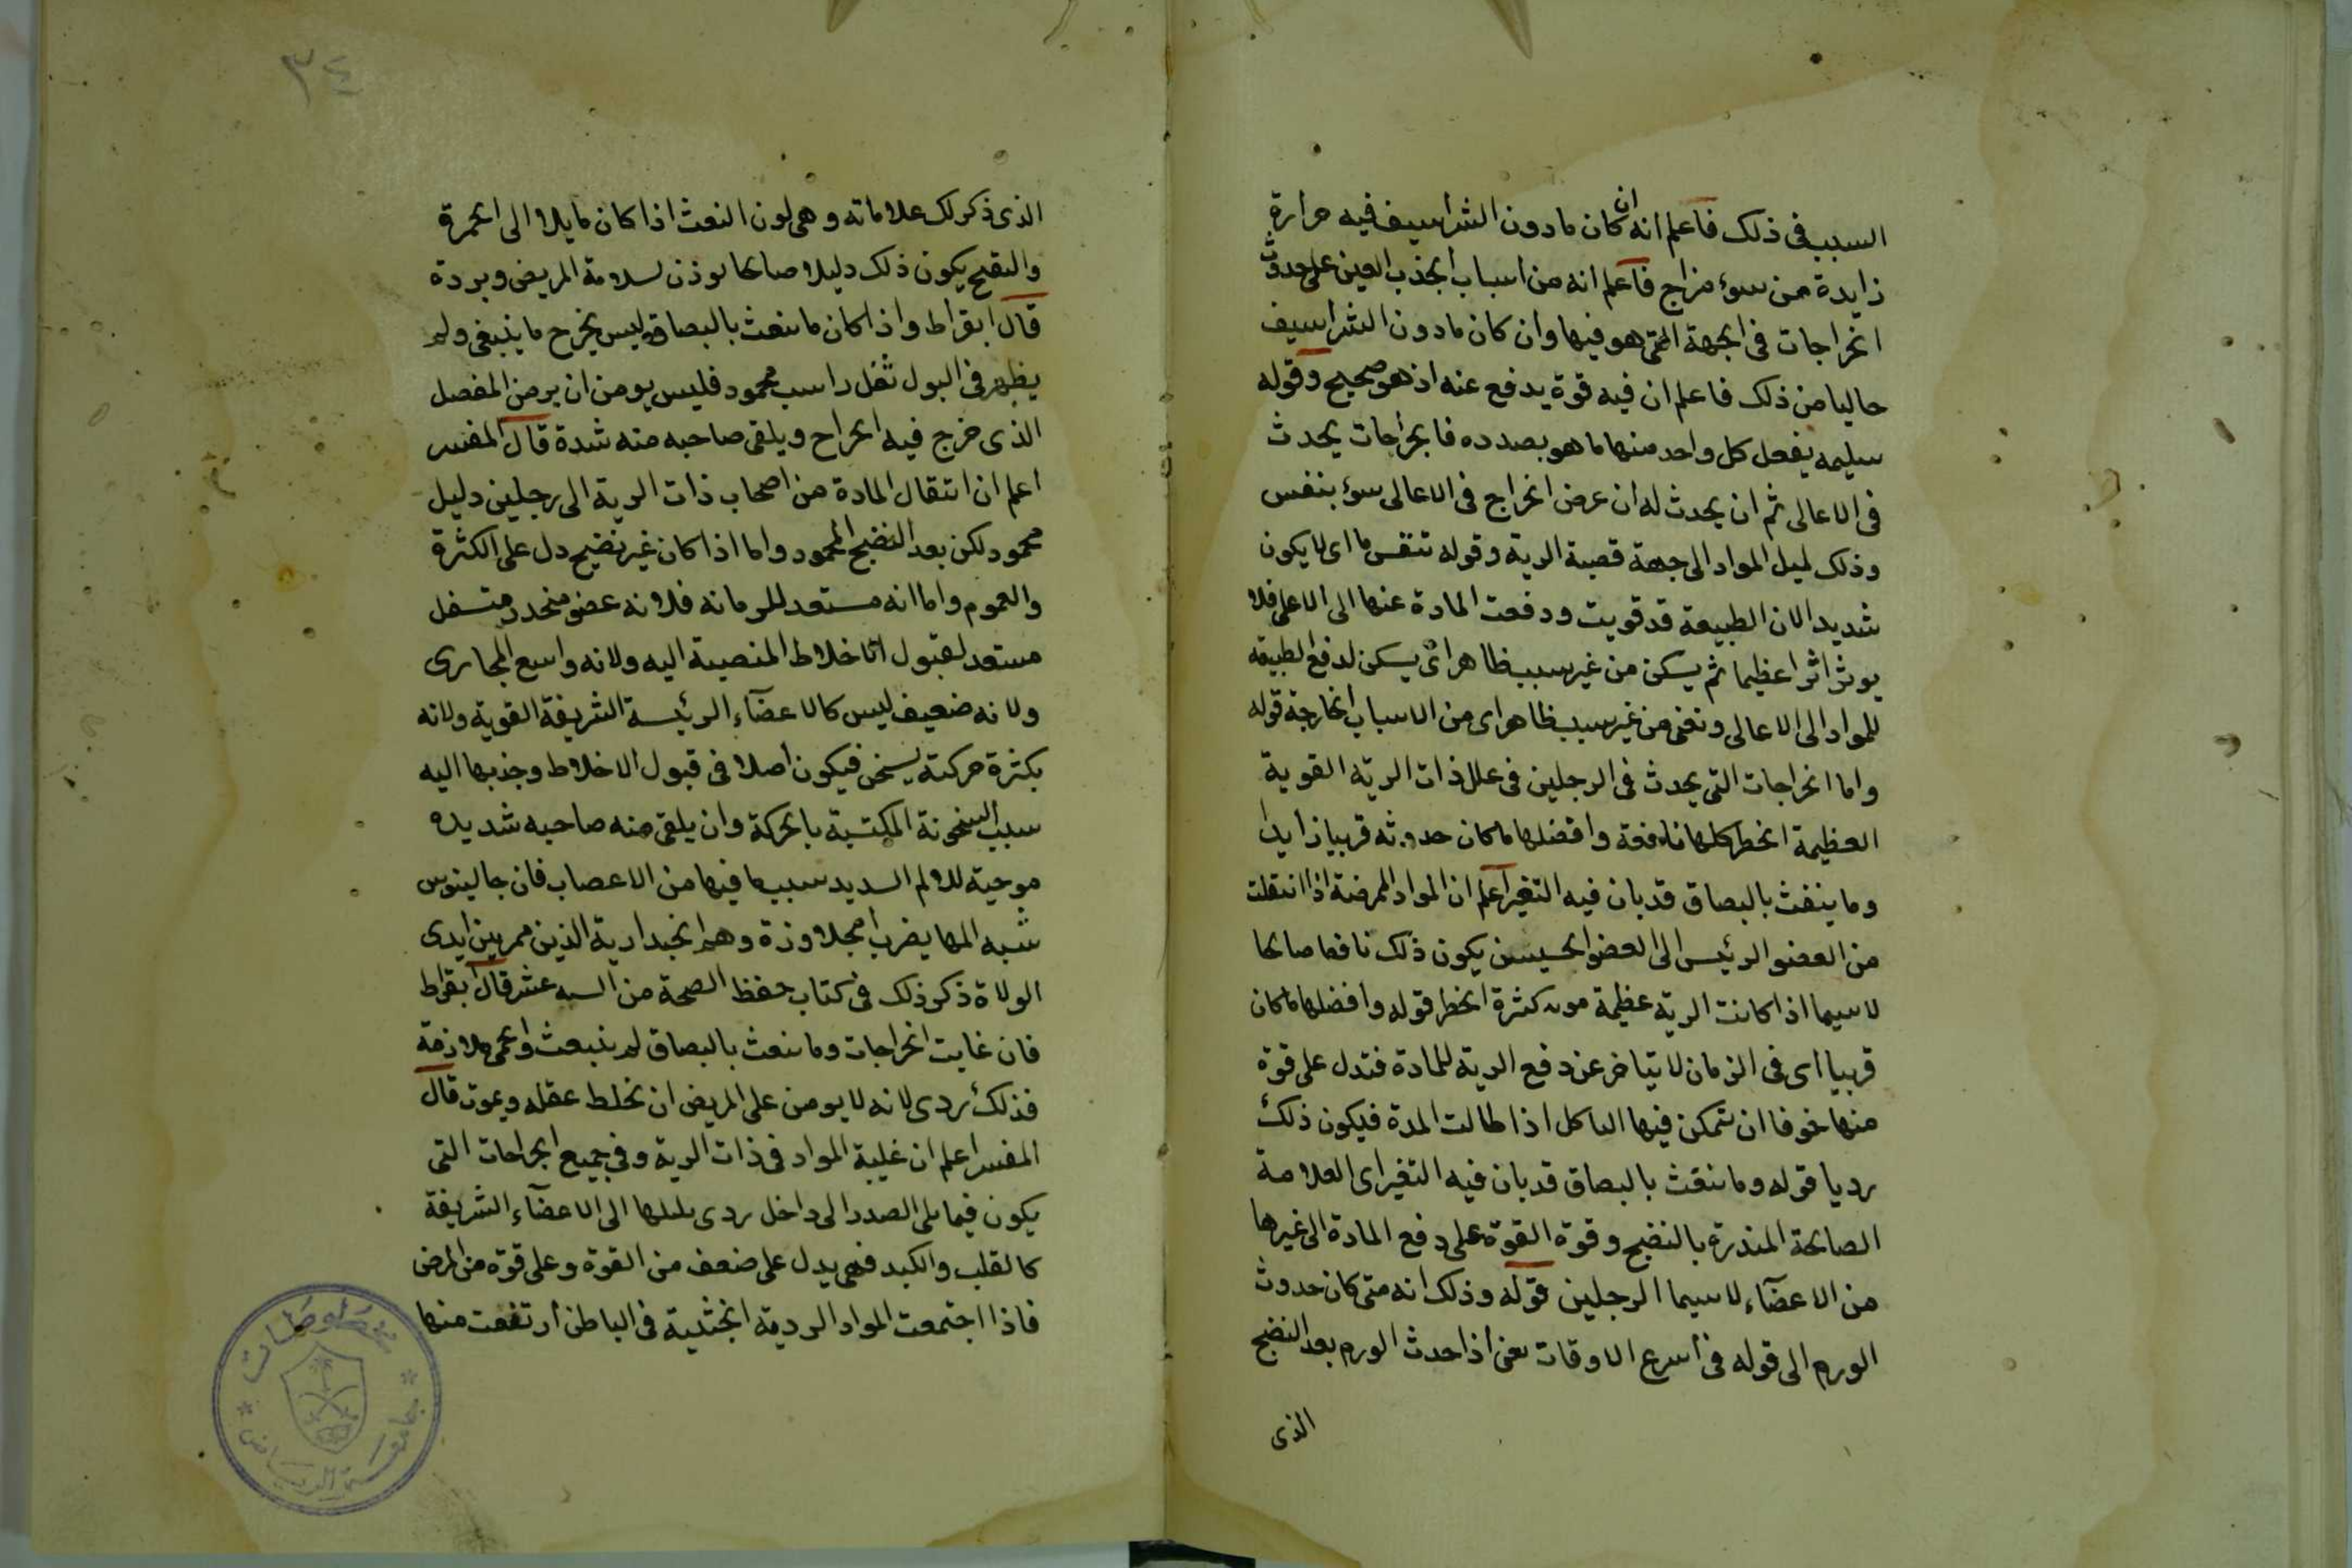 السبب فى ذلك فاعلم انه ان كان مادون الشراسيف فيه حرارة
زايدة من سوء مزاج فاعلم انه من اسباب الجذب المعين على حدوث
الخراجات فى الجهة التى هو فيها وان كان مادون الشراسيف
خاليا من ذلك فاعلم ان فيه قوة يدفع عنه اذ هو صحيح وقوله
سليمه يفعل كل واحد منها ما هو بصدده فالجراحات يحدث
فى الاعالى ثم ان يحدث له ان عرض الخراج فى الاعالى سوء بنفس
وذلك لميل المواد الى جهة قصبة الرية وقوله تنفس ما اى لا يكون
شديد الان الطبيعة قد قويت ودفعت المادة عنها الى الاعلى فلا
يوثر اثرا عظيما ثم يسكن من غير سبب ظاهر اى يسكن لدفع الطبيعة
للمواد الى الاعالى ونعنى من غير سبب ظاهر اى من الاسباب الخارجة قوله
واما الخراجات التى يحدث فى الرجلين فى علل ذات الرية القوية
العظيمة الخطر كلها نافعة وافضلها ما كان حدوثه قريبا زايدا
وما ينفث بالبصاق قد بان فيه التغير اعلم ان المواد الممرضة اذا انتقلت
من العضو الرئيس الى العضو الخسيس يكون ذلك نافعا صالحا
لاسيما اذا كانت الرية عظيمة كثرة الخطر قوله وافضلها ما كان
قريبا اى فى الزمان لا يتاخر عن دفع الرية للمادة فتدل على قوة
منها خوفا ان تتمكن فيها التاكل اذا طالت المدة فيكون ذلك
رديا قوله وما ننفث بالبصاق قد بان فيه التغير اى العلامة
الصالحة المنذرة بالنضج وقوة القوة على دفع المادة الى غيرها
من الاعضآء لاسيما الرجلين قوله وذلك انه متى كان حدوث
الورم الى قوله فى اسرع الاوقات يعنى اذا حدث الورم بعد النضج
الذى
٣٤
الذى ذكر لك علاماته وهى لون النفث اذا كان مايلا الى الحمرة
والتقيح يكون ذلك دليلا صالحا لوذن لسلامة المريض وبردة
قال ابقراط واذا كان ما ننفث بالبصاق ليس يخرج ما ينبغى ولم
يظهر فى البول ثفل راسب محمود فليس يومن ان يرمن المفصل
الذى خرج فيه الخراج ويلقى صاحبه منه شدة قال المفسر
اعلم ان انتقال المادة من اصحاب ذات الرية الى رجلين دليل
محمود لكن بعد النضج المحمود واما اذا كان غير نضيج دل على الكثرة
والعموم واما انه مستعد للزمانة فلانه عضو منحدر متسفل
مستعد لقبول الاخلاط المنصبة اليه ولانه واسع المجارى
ولانه ضعيف ليس كالاعضآء الرئيسة الشريفة القوية ولانه
بكثرة حركته يسخن فيكون اصلا فى قبول الاخلاط وجذبها اليه
سبب السخونة المكتسبة بالحركة وان يلقى منه صاحبه شديدة
موجبة للالم السديد سبب ما فيها من الاعصاب فان جالينوس
شبه المها يضرب الجلاوزة وهم الجندارية الذين ممر بين ايدى
الولاة ذكر ذلك فى كتاب حفظ الصحة من السه عشر قال ابقراط
فان غابت الخراجات وما ننفث بالبصاق لم ينبعث والحمى ملازمة
فذلك ردى لانه لا يومن على المريض ان يخلط عقله ويموت قال
المفسر اعلم ان غلبة المواد فى ذات الرية وفى جميع الجراحات التى
يكون فيما يلى الصدر الى داخل ردى لميلها الى الاعضآء الشريفة
كالقلب والكبد فهى يدل على ضعف من القوة وعلى قوة من المرض
فاذا اجتمعت المواد الردية الخبيثة فى الباطن ارتفعت منها
مخطوطات
جامعة الرياض